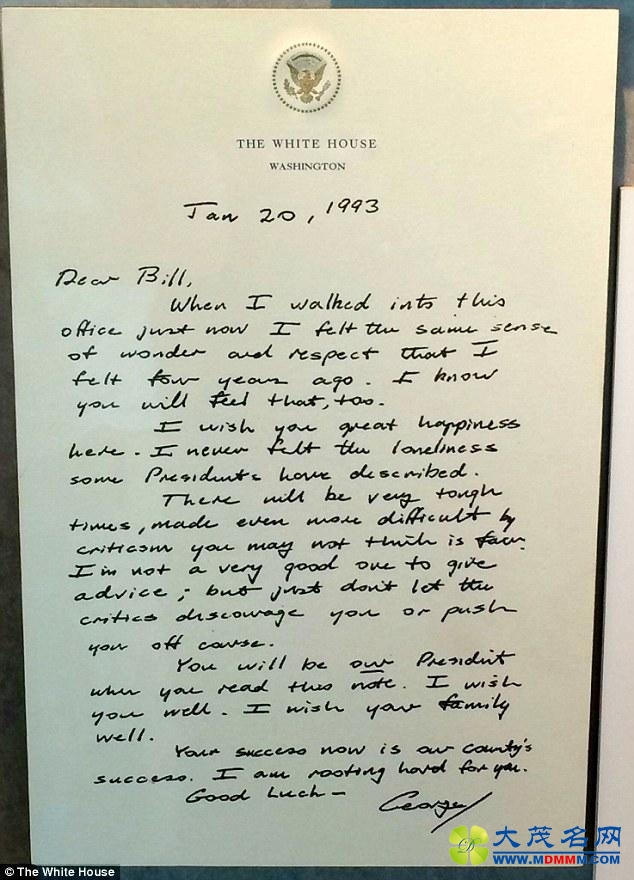 THE WHITE HOUSE
WASHINGTON
Jan 20, 1993
Dear Bill,
When I walked into this
office just now I felt the same sense
of wonder and respect that I
felt four years ago. I know
you will feel that, too.
I wish you great happiness
here. I never felt the loneliness
some Presidents have described.
There will be very tough
times, made even more difficult by
criticism you may not think is fair.
I'm not a very good one to give
advice; but just don't let the
critics discourage you or push
you off course.
You will be our President
when you read this note. I wish
you well. I wish your family
well.
Your success now is our country's
success. I am rooting hard for you.
Good Luck—
George
大茂名网
WWW.MDMMM.COM
© The White House